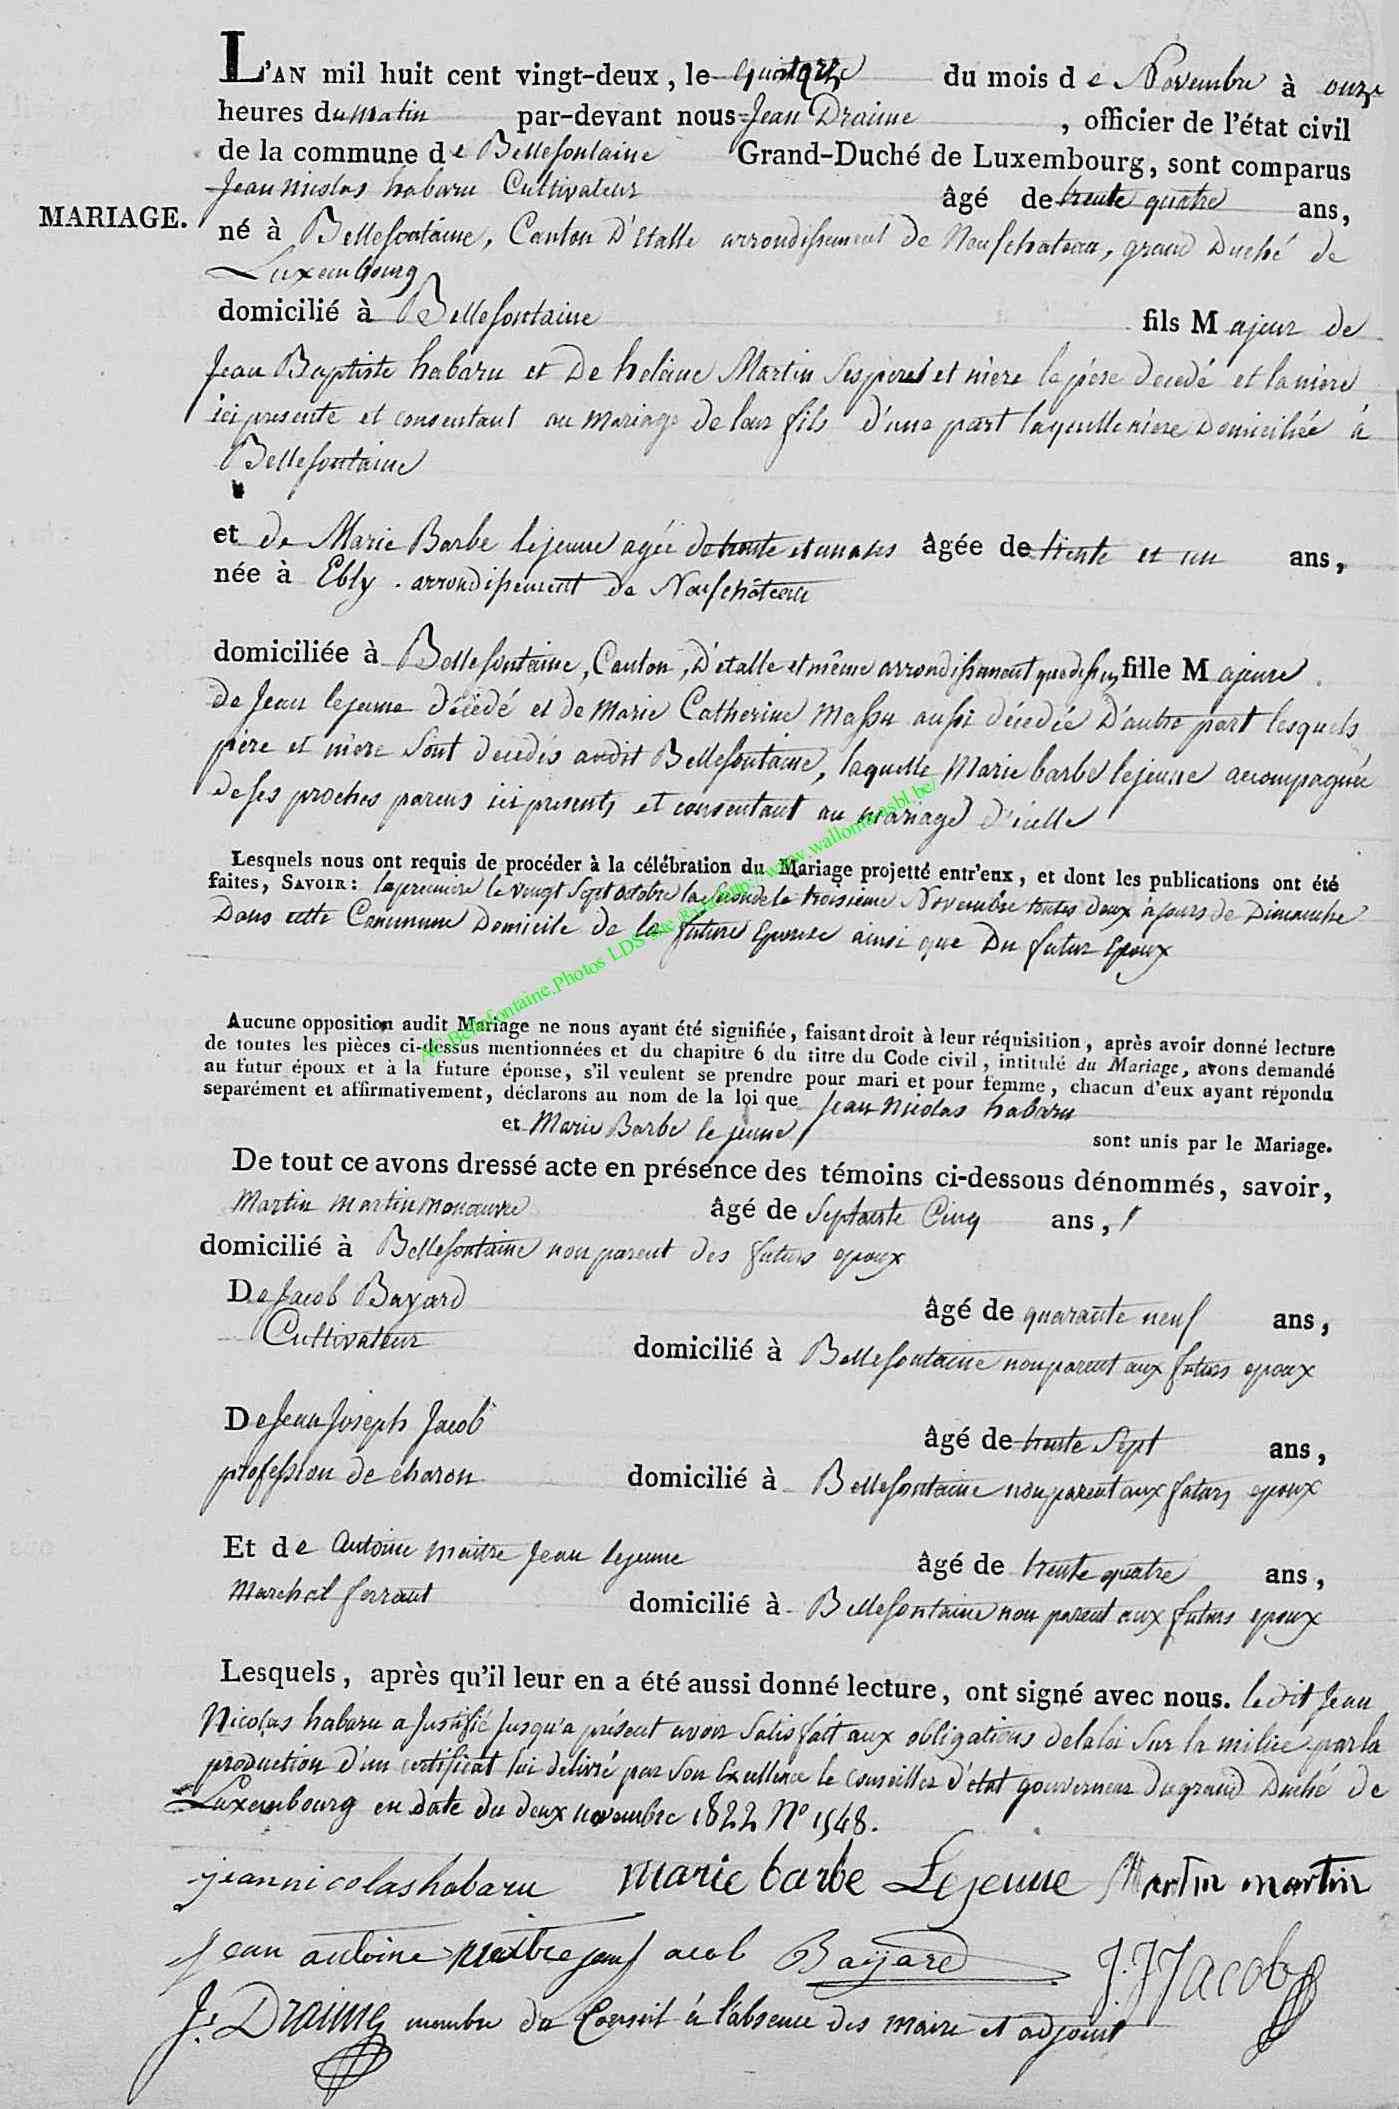 L'AN mil huit cent vingt-deux, le quatorze du mois de Novembre à onze
heures du matin par-devant nous Jean Draime, officier de l'état civil
de la commune de Bellefontaine Grand-Duché de Luxembourg, sont comparus
Jean nicolas habaru Cultivateur âgé de trente quatre ans,
MARIAGE.
né à Bellefontaine, Canton D'Etalle arrondissement de Neufchateau, grand Duché de
Luxembourg
domicilié à Bellefontaine fils Majeur de
Jean Baptiste habaru et De helène Martin ses père et mère le père decedé et la mère
ici presente et consentant au mariage de leur fils d'une part laquelle mère Domiciliée à
Bellefontaine
et de Marie Barbe lejeune agée de trente et un ans âgée de trente et un ans,
née à Ebly. arrondissement de Neufchâteau
domiciliée à Bellefontaine, Canton, D'etalle et même arrondissement que dessus fille Majeure
de Jean lejeune décédé et de Marie Catherine Massu aussi décedée D'autre part lesquels
père et mère sont decedés audit Bellefontaine, laquelle Marie barbe lejeune accompagnée
de ses proches parens ici presents et consentant au mariage d'icelle
Lesquels nous ont requis de procéder à la célébration du Mariage projetté entr'eux, et dont les publications ont été
faites, SAVOIR: la premiere le vingt sept octobre la seconde le troisième Novembre toutes deux à jours de Dimanche
Dans cette Commune Domicile de la future Epouse ainsi que Du futur Epoux
AC Bellefontaine.Photos LDS http://www.wallonia.asbl.be/
Aucune opposition audit Mariage ne nous ayant été signifiée, faisant droit à leur réquisition, après avoir donné lecture
de toutes les pièces ci-dessus mentionnées et du chapitre 6 du titre du Code civil, intitulé du Mariage, avons demandé
au futur époux et à la future épouse, s'il veulent se prendre pour mari et pour femme, chacun d'eux ayant répondu
separément et affirmativement, déclarons au nom de la loi que Jean Nicolas habaru
et Marie Barbe le jeune sont unis par le Mariage.
De tout ce avons dressé acte en présence des témoins ci-dessous dénommés, savoir,
Martin Martin Manœuvre âgé de Septante Cinq ans,
domicilié à Bellefontaine non parent des futurs epoux
De Jacob Bayard âgé de quarante neuf ans,
Cultivateur domicilié à Bellefontaine non parent aux futurs epoux
De Jean Joseph Jacob âgé de trente Sept ans,
profession de charon domicilié à Bellefontaine non parent aux futurs epoux
Et de Antoine Maitre Jean lejeune âgé de trente quatre ans,
Marchal ferrant domicilié à Bellefontaine non parent aux futurs epoux
Lesquels, après qu'il leur en a été aussi donné lecture, ont signé avec nous. ledit Jean
Nicolas habaru a Justifié Jusqu'a présent avoir Satisfait aux obligations de la loi Sur la milice par la
production d'un certificat lui delivré par Son Excellence le Conseiller d'état gouverneur du grand Duché de
Luxembourg en date du deux novembre 1822 N° 1548.
jeannicolashabaru marie barbe Lejeune Martin martin
Jean antoine maitre jean Jacob Bayard J.J Jacob
J. Draime membre du Conseil à l'absence des maire et adjoint